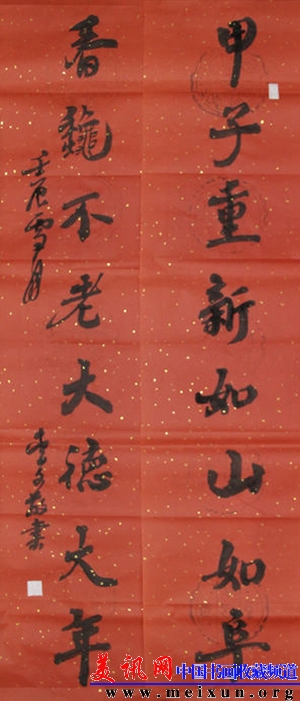 甲子重新如山如阜
春龝不老大德大年
壬辰雪月
李文書
美讯网 中国书画收藏频道
www.meixun.org